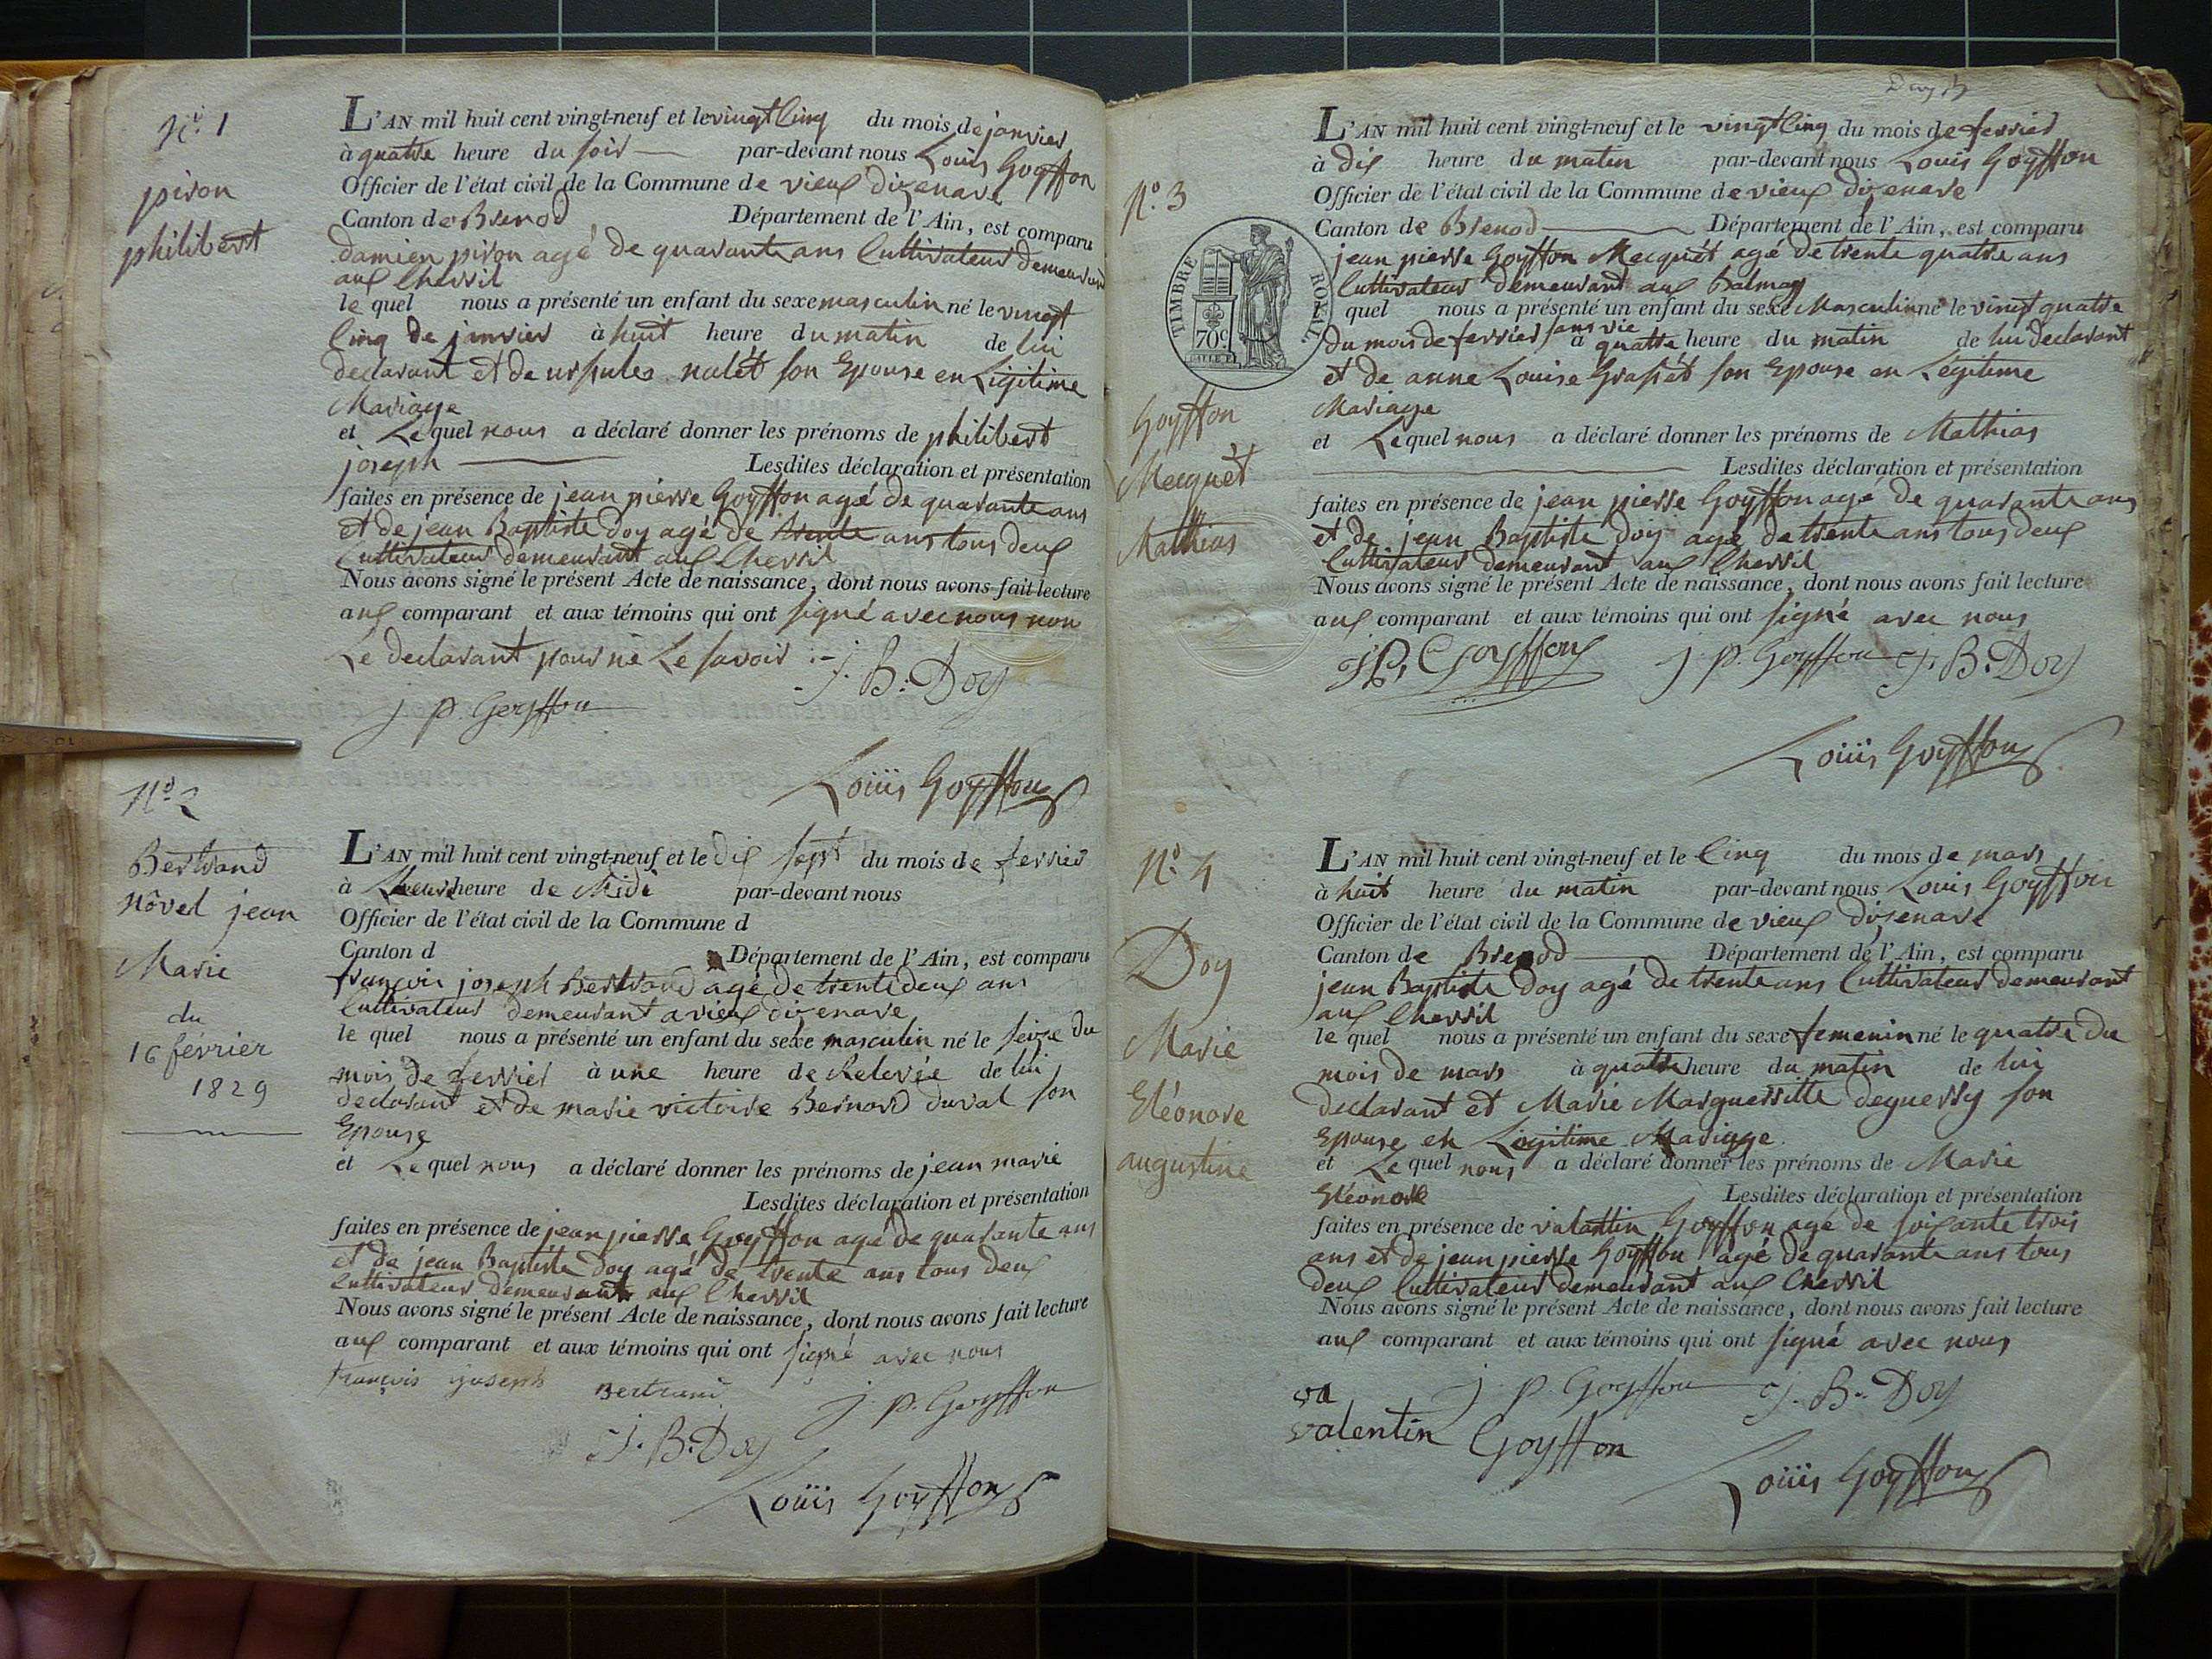 N.º 1
piron
philibert
L'AN mil huit cent vingt-neuf et le vingt Cinq du mois de janvier
à quatre heure du soir par-devant nous Louis Goyffon
Officier de l'état civil de la Commune de vieux dizenave
Canton de Brenod Département de l'Ain, est comparu
damien piron agé de quarante ans Cultivateur demeurant
aux Cherril
le quel nous a présenté un enfant du sexe masculin né le vingt
Cinq de janvier à huit heure du matin de lui
declarant et de ursules nalét son Epouse en Ligitime
Mariage
et Le quel nous a déclaré donner les prénoms de philibert
joseph Lesdites déclaration et présentation
faites en présence de jean pierre Goyffon agé de quarante ans
et de jean Baptiste doy agé de trente ans tous deux
Cultivateur demeurant aux Cherril
Nous avons signé le présent Acte de naissance, dont nous avons fait lecture
aux comparant et aux témoins qui ont signé avec nous non
Le declarant pour ne Le savoir :-
J. B. Doy
j. p. Goyffon
Loüis Goyffon
Nº 2
Bertrand
Nôvel jean
Marie
du
16 fevrier
1829
L'AN mil huit cent vingt-neuf et le dix sept du mois de fevrier
à Lheure heure de Midi par-devant nous
Officier de l'état civil de la Commune d
Canton d Département de l'Ain, est comparu
françois joseph Bertrand agé de trente deux ans
Cultivateur demeurant a vieux dizenave
le quel nous a présenté un enfant du sexe masculin né le seize du
mois de fevrier à une heure de Relevée de lui
declarant et de marie victoire Bernard duval son
Epouse
et Le quel nous a déclaré donner les prénoms de jean marie
Lesdites déclaration et présentation
faites en présence de jean pierre Goyffon agé de quarante ans
et de jean Baptiste doy agé de trente ans tous deux
Cultivateur demeurant aux Cherril
Nous avons signé le présent Acte de naissance, dont nous avons fait lecture
aux comparant et aux témoins qui ont signé avec nous
françois joseph Bertrand
j. p. Goyffon
J. B. Doy
Loüis Goyffon
N.º 3
TIMBRE ROYAL
70c
Goyffon
Mecquèt
Mathias
L'AN mil huit cent vingt-neuf et le vingt Cinq du mois de fevrier
à dix heure du matin par-devant nous Louis Goyffon
Officier de l'état civil de la Commune de vieux dizenave
Canton de Brenod Département de l'Ain, est comparu
jean pierre Goyffon Mecquét agé de trente quatre ans
Cultivateur demeurant aux Balmay
quel nous a présenté un enfant du sexe Masculin né le vingt quatre
du mois de fevrier sans vie à quatre heure du matin de lui declarant
et de anne Louise Grassét son Epouse en Légitime
Mariage
et Le quel nous a déclaré donner les prénoms de Mathias
Lesdites déclaration et présentation
faites en présence de jean pierre Goyffon agé de quarante ans
et de jean Baptiste doy agé de trente ans tous deux
Cultivateur demeurant aux Cherril
Nous avons signé le présent Acte de naissance, dont nous avons fait lecture
aux comparant et aux témoins qui ont signé avec nous
JP. Goyffon j. p. Goyffon J. B. Doy
Loüis Goyffon
N.º 4
Doy
Marie
Eléonore
augustine
L'AN mil huit cent vingt-neuf et le Cinq du mois de mars
à huit heure du matin par-devant nous Louis Goyffon
Officier de l'état civil de la Commune de vieux dizenave
Canton de Brenod Département de l'Ain, est comparu
jean Baptiste doy agé de trente ans Cultivateur demeurant
aux Cherril
le quel nous a présenté un enfant du sexe femenin né le quatre du
mois de mars à quatre heure du matin de lui
declarant et Marie Marguerritte deguerry son
Epouse en Legitime Mariage
et Le quel nous a déclaré donner les prénoms de Marie
Eléonore Lesdites déclaration et présentation
faites en présence de valantin Goyffon agé de soixante trois
ans et de jean pierre Goyffon agé de quarante ans tous
deux Cultivateur demeurant aux Cherril
Nous avons signé le présent Acte de naissance, dont nous avons fait lecture
aux comparant et aux témoins qui ont signé avec nous
va j. p. Goyffon J. B. Doy
valentin Goyffon
Loüis Goyffon